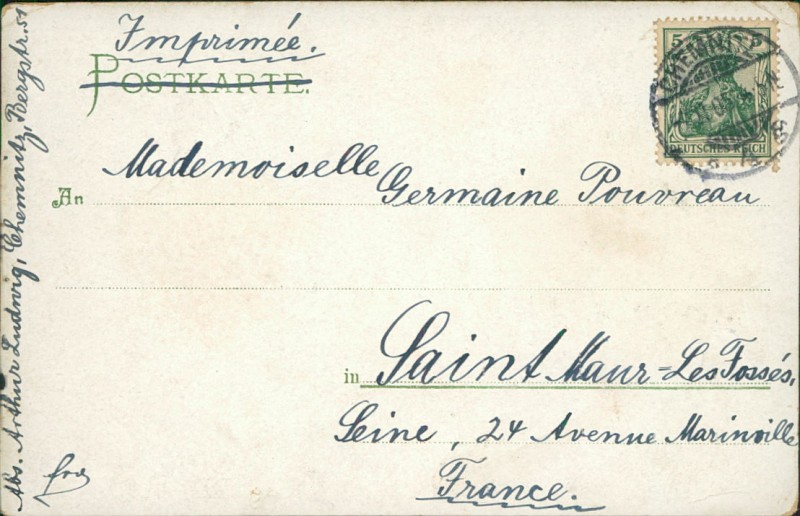 Imprimée.
POSTKARTE.
5
CHEMNITZ
DEUTSCHES REICH
Mademoiselle
An Germaine Pouvreau
in Saint Maur-Les Fossés,
Seine, 24 Avenue Marinville
France.
Abs. Arthur Ludwig, Chemnitz, Bergstr. 51